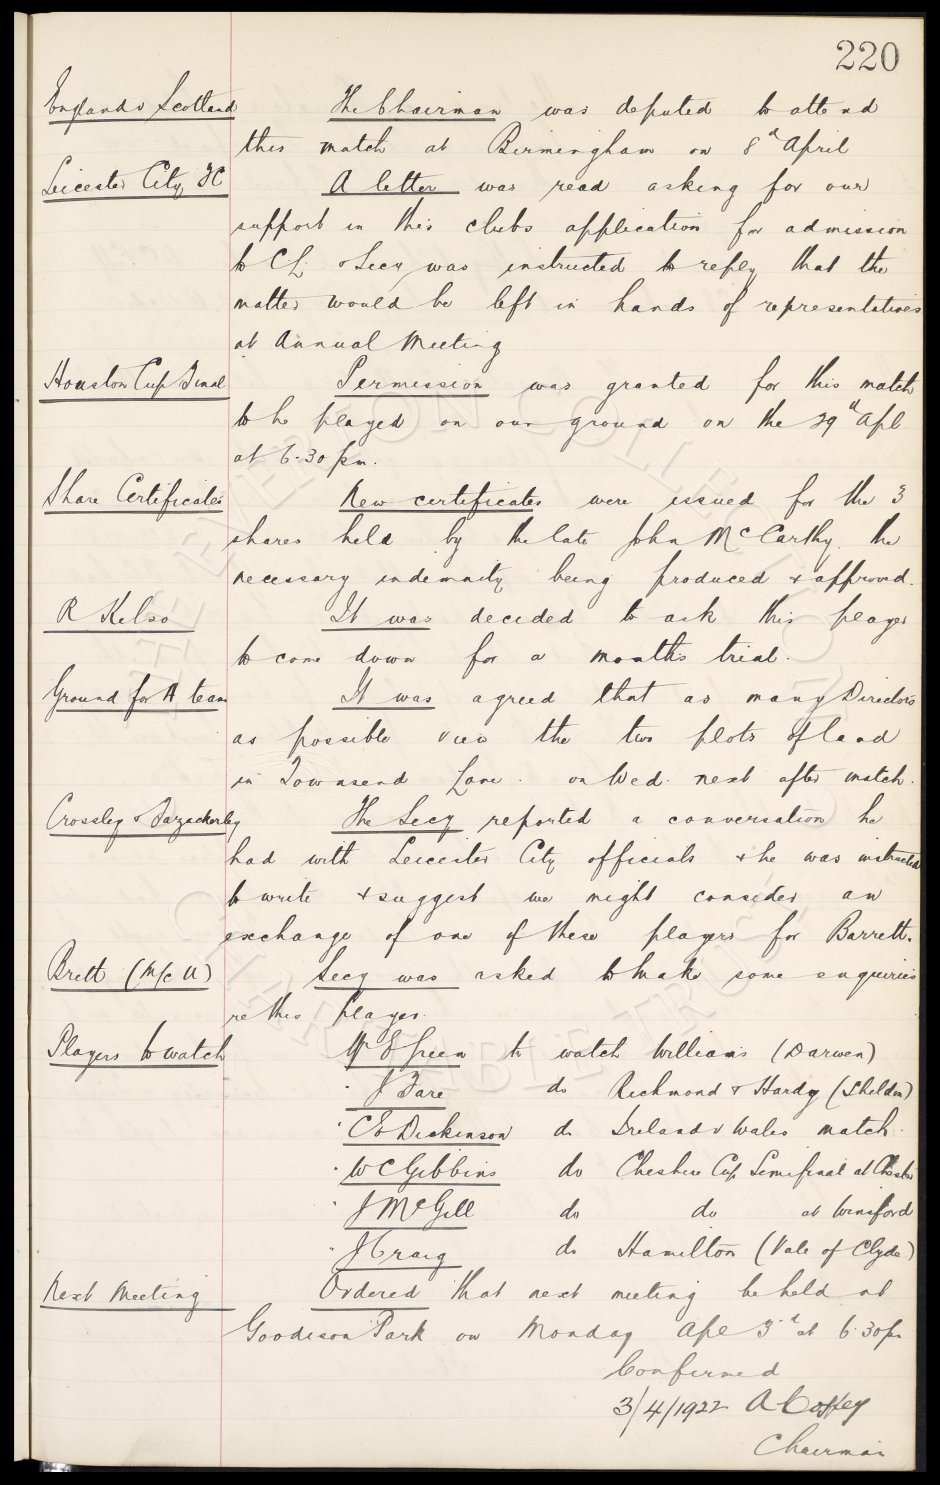 220
England v Scotland The Chairman was deputed to attend
this match at Birmingham on 8th April
Leicester City FC A letter was read asking for our
support in this clubs application for admission
to CL & Secy was instructed to reply that the
matter would be left in hands of representatives
at Annual Meeting
Houston Cup Final Permission was granted for this match
to be played on our ground on the 29th Apl
at 6.30 pm.
Share Certificates New certificates were issued for the 3
shares held by the late John McCarthy the
necessary indemnity being produced & approved.
R Kelso It was decided to ask this player
to come down for a months trial.
Ground for A team It was agreed that as many Directors
as possible view the two plots of land
in Townsend Lane. on Wed. next after match.
Crossley & Fazackerley The Secy reported a conversation he
had with Leicester City officials & he was instructed
to write & suggest we might consider an
exchange of one of these players for Barrett.
Brett (M/c U) Secy was asked to make some enquiries
re this player.
Players to watch Mr E Green to watch Williams (Darwen)
" J Fare do Richmond & Hardy (Sheldon)
" C E Dickinson do Ireland v Wales match.
" W C Gibbins do Cheshire Cup Semifinal at Chester
" J McGill do do at Winsford
" J Craig do Hamilton (Vale of Clyde)
Next Meeting Ordered that next meeting be held at
Goodison Park on Monday Apl 3rd at 6.30pm
Confirmed
3/4/1922 A Coffey
Chairman
THE EVERTON COLLECTION
CHARITABLE TRUST